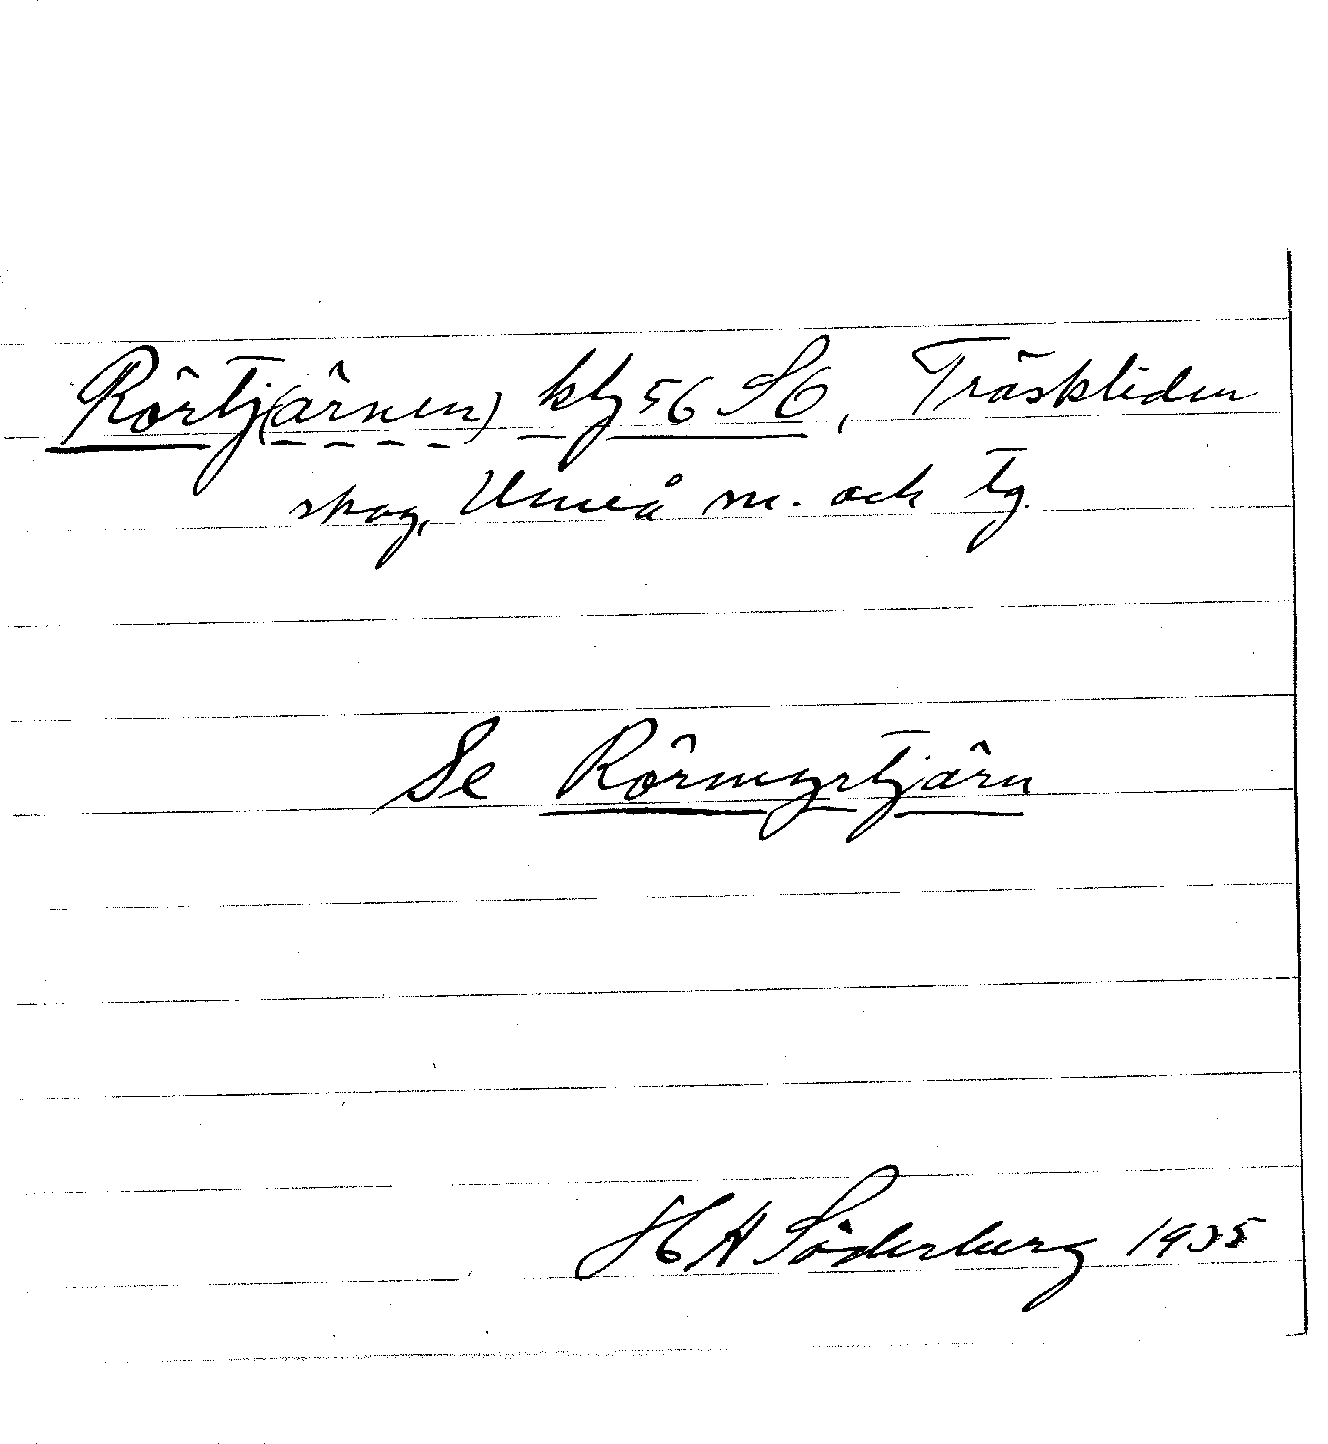 Rörtj(ärnen) ktj 56 S6, Träskliden
skog, Umeå m. och tg.
Se Rörmyrtjärn
H A Söderberg 1935